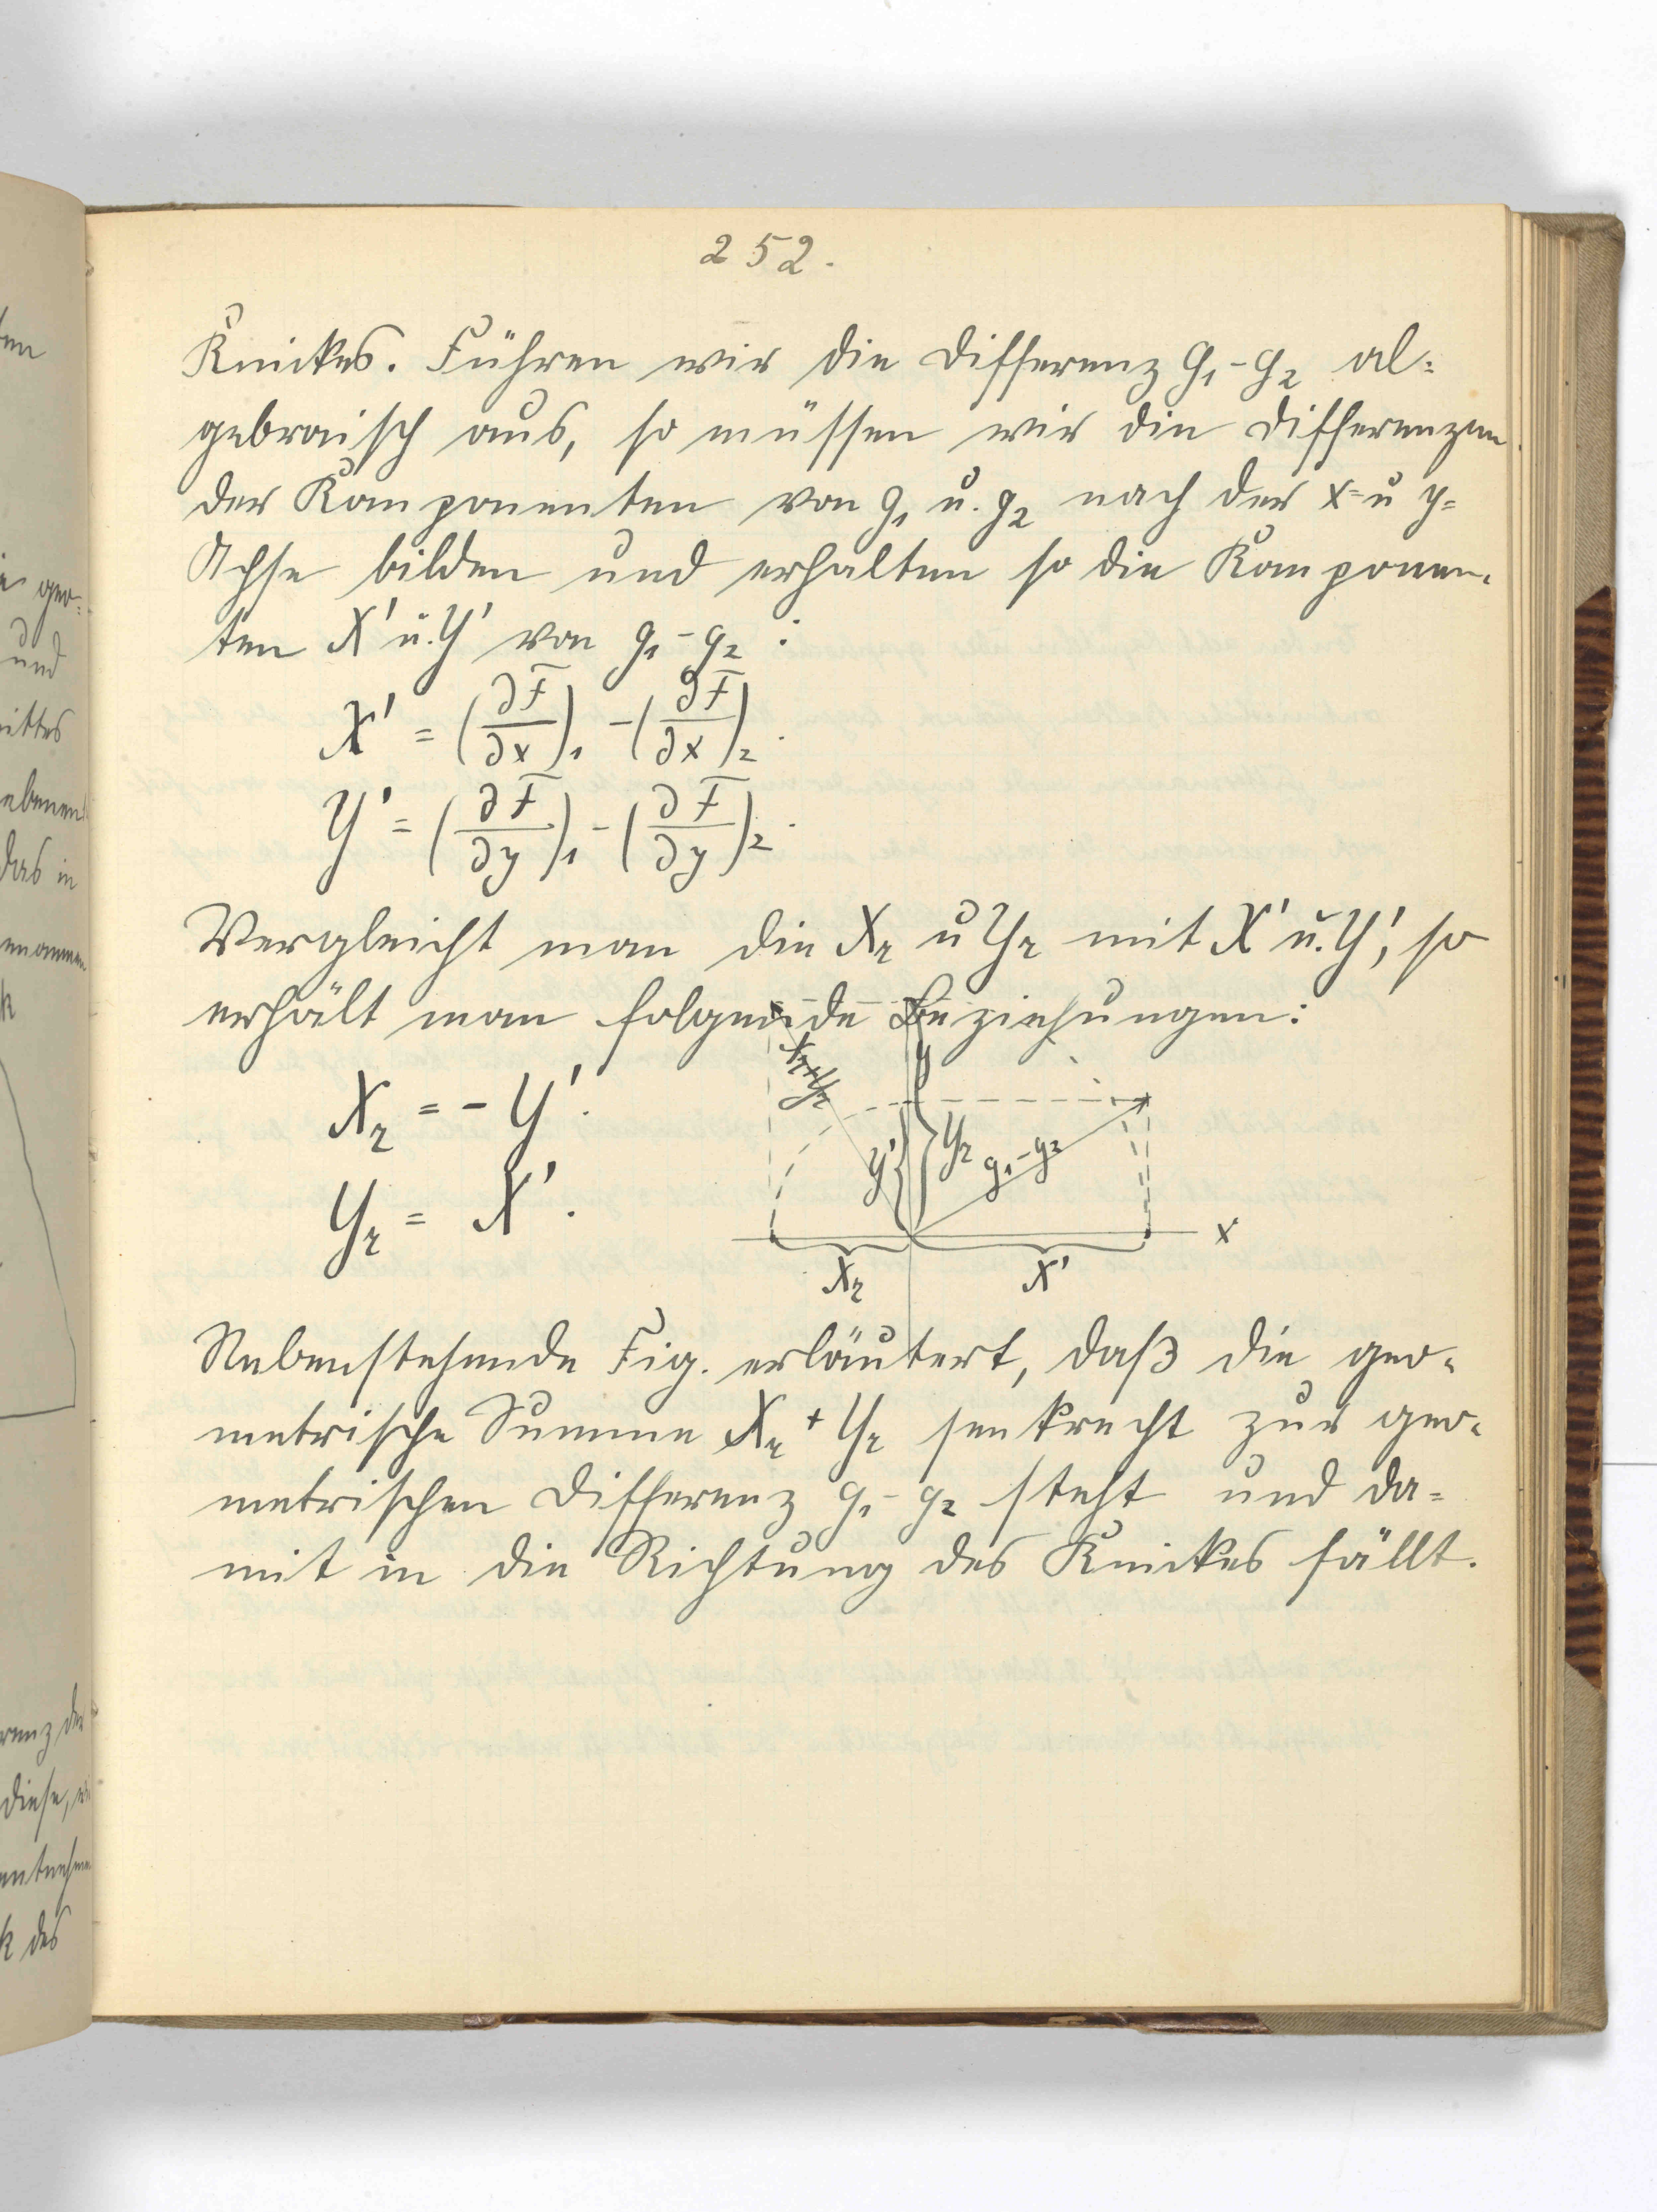 252.
Knickes. Führen wir die Differenz g₁-g₂ al=
gebraisch aus, so müssen wir die Differenzen
der Komponenten von g₁ u. g₂ nach der x= u y=
Achse bilden und erhalten so die Komponen=
ten X' u. Y' von g₁-g₂ :
X' = (∂F/∂x)₁ - (∂F/∂x)₂.
Y' = (∂F/∂y)₁ - (∂F/∂y)₂.
Vergleicht man die Xr u Yr mit X' u. Y', so
erhält man folgende Beziehungen:
Xr = - Y'.
Yr = X'.
Xr+Yr
y
Y'
Yr
g₁-g₂
x
Xr
X'
Nebenstehende Fig. erläutert, daß die geo=
metrische Summe Xr + Yr senkrecht zur geo=
metrischen Differenz g₁-g₂ steht und da=
mit in die Richtung des Knickes fällt.
ten
geo=
und
nittes
ebenen
das in
k
renz der
diese,
k des